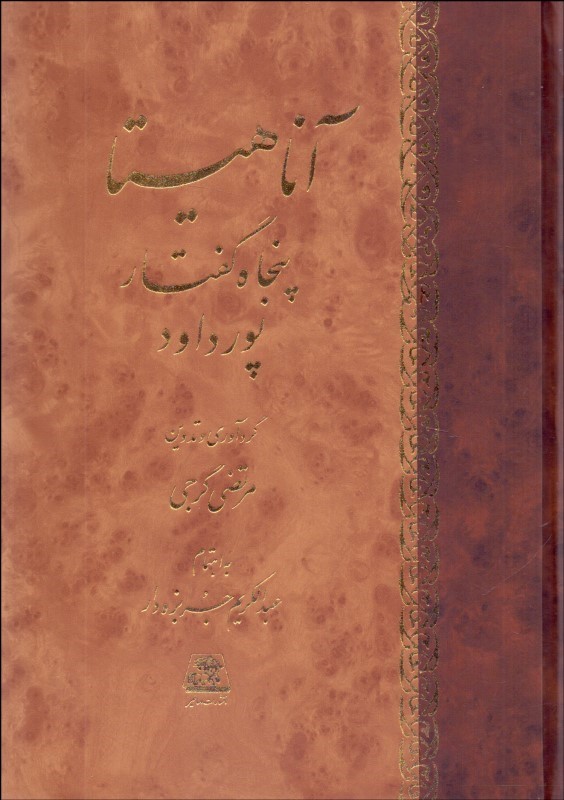 آناهیتا
پنجاه گفتار
پور داود
گردآوری و تدوین
مرتضی گرجی
به اهتمام
عبدالکریم جربزه‌دار
انتشارات اساطیر